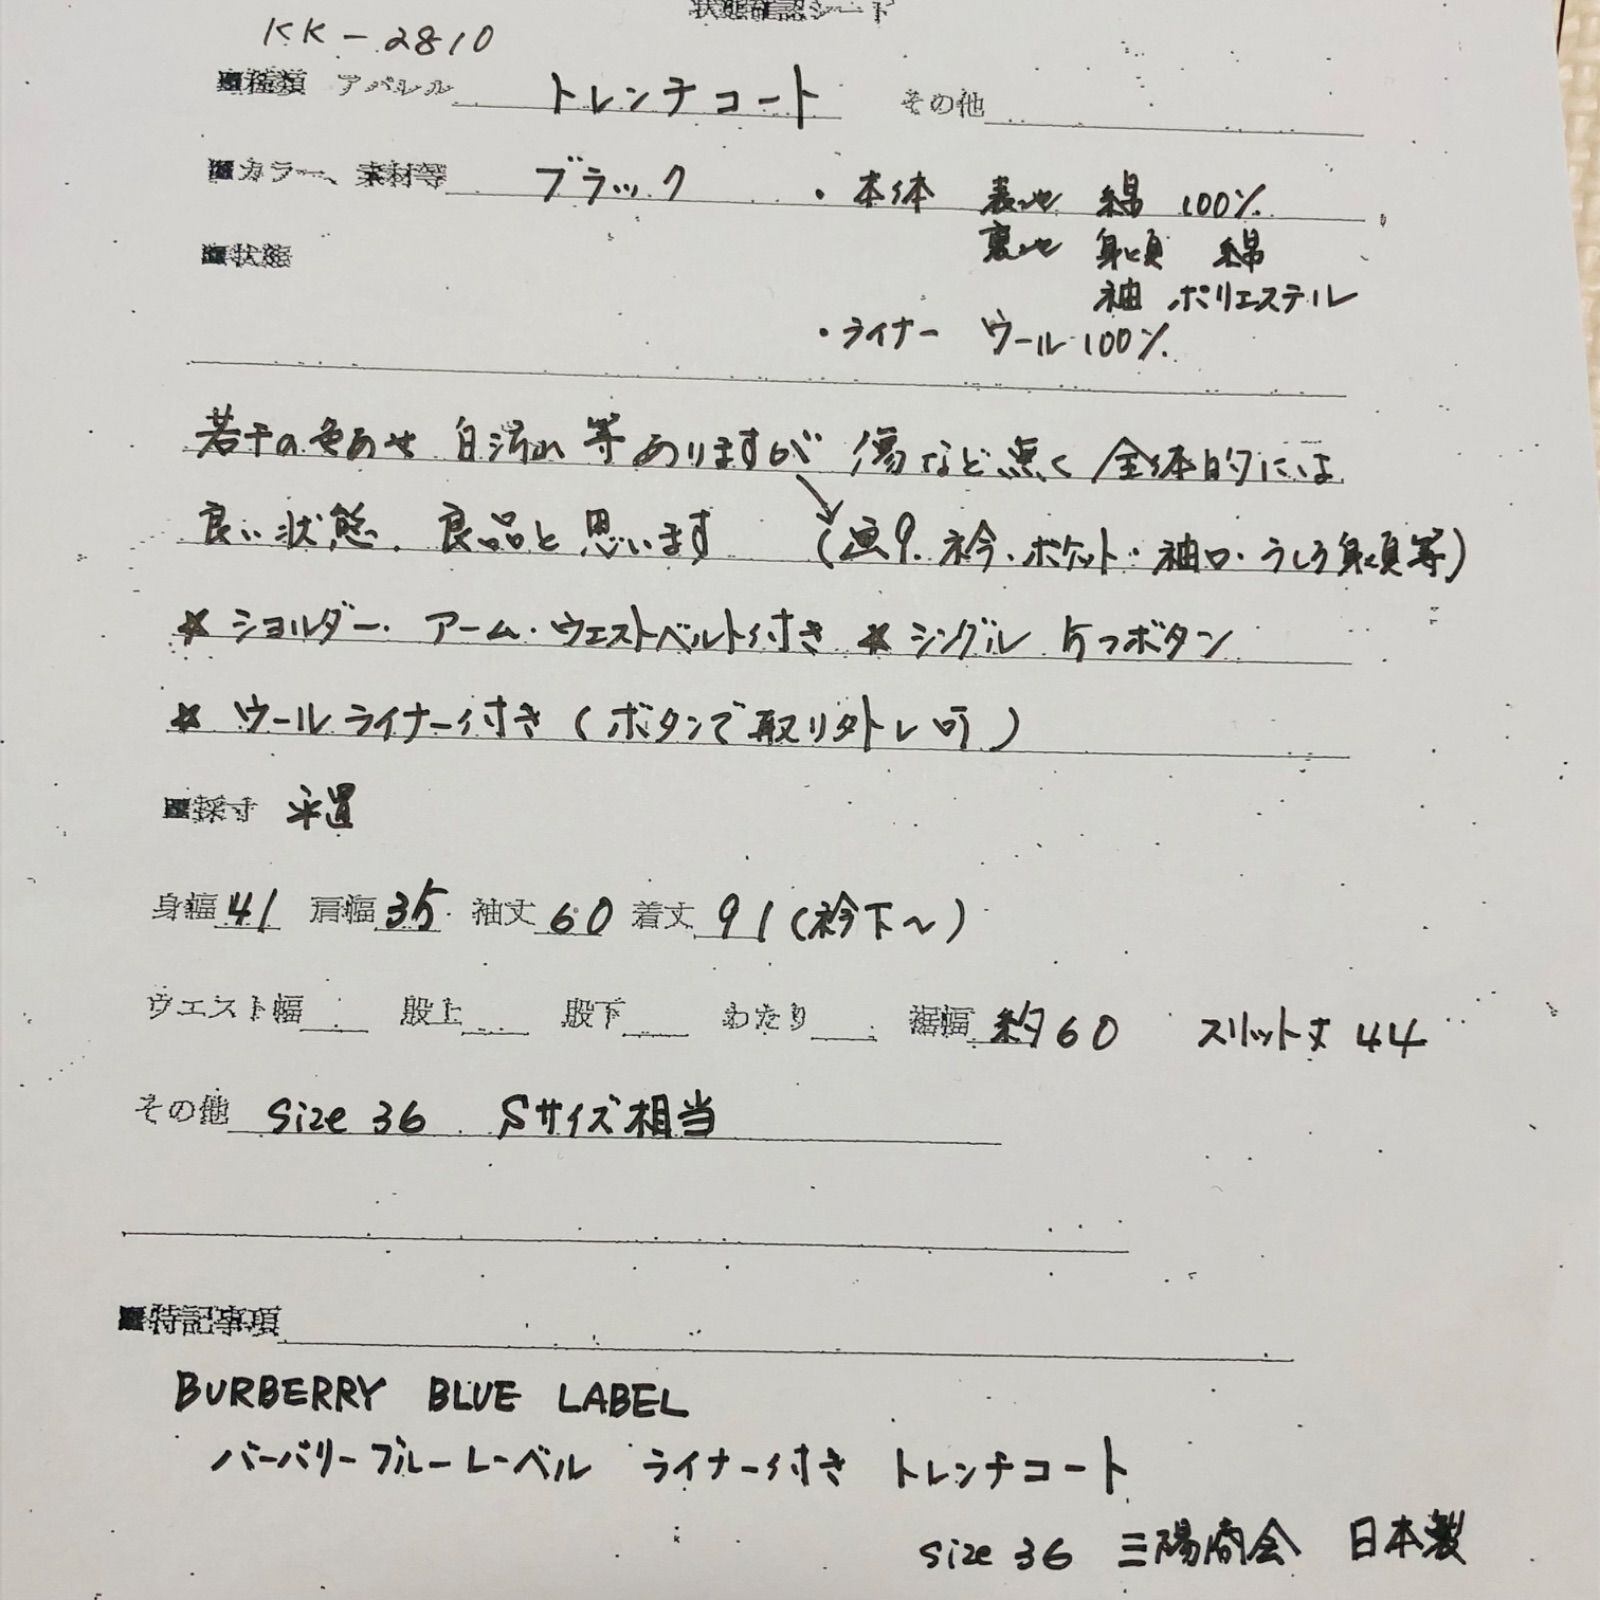 状態確認シート
KK-2810
■種類 アパレル トレンチコート その他
■カラー、素材等 ブラック ・本体 表地 綿 100%
裏地 身頃 綿
袖 ポリエステル
■状態
・ライナー ウール100%
若干の色あせ 白汚れ 等ありますが 傷など無く 全体的には
良い状態、良品と思います (画9. 衿・ポケット・袖口・うしろ身頃等)
★ショルダー・アーム・ウエストベルト付き ★シングル 5つボタン
★ウールライナー付き(ボタンで取り外し可)
■採寸 平置
身幅 41 肩幅 35 袖丈 60 着丈 91(衿下〜)
ウエスト幅 股上 股下 わたり 裾幅 約60 スリット丈 44
その他 size 36 Sサイズ相当
■特記事項
BURBERRY BLUE LABEL
バーバリーブルーレーベル ライナー付き トレンチコート
size 36 三陽商会 日本製